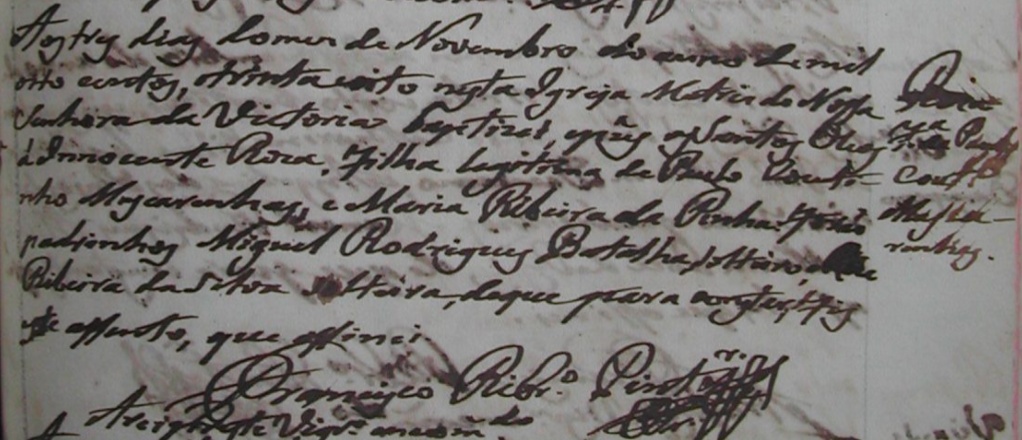 Aos tres dias do mes de Novembro do anno de mil
oito centos, e trinta e oito nesta Igreja Matris de Nossa
Senhora da Victoria baptizei, e pus os Santos Oleos
á Innocente Roza, filha legitima de Paulo Couti-
nho Mascarenhas, e Maria Ribeira da Penha. Forão
padrinhos Miguel Rodrigues Batalha, solteiro,
Ribeira da Silva solteira, do que para constar, fis
este assento, que assinei.
Francisco Ribr.o Pinto
Arcipreste Vigr.o encom.do
Roza
f.a de Paulo
Cout.o
Masca-
renhas.